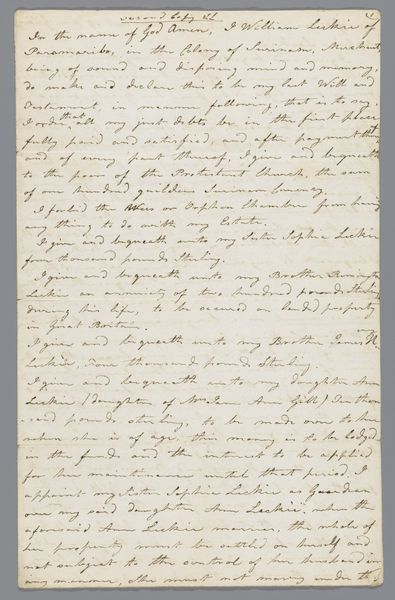 second Copy
In the name of God Amen, I William Leckie of
Paramaribo, in the Colony of Surinam, Merchant,
being of sound and disposing mind and memory,
do make and declare this to be my last Will and
Testament, in manner following, that is to say.
I order, that all my just debts be in the first place
fully paid and satisfied, and after payment
and of every part thereof, I give and bequeath
to the poor of the Protestant Church, the sum
of one hundred guilders Surinam Currency.
I forbid the Wees or Orphan Chamber from having
any thing to do with my Estate.
I give and bequeath unto my Sister Sophia Leckie
four thousand pounds Sterling.
I give and bequeath unto my Brother
Leckie an annuity of two hundred pounds Sterling
during his life, to be secured on landed property
in Great Britain.
I give and bequeath unto my Brother James
Leckie, Four thousand pounds Sterling.
I give and bequeath unto my daughter Ann
Leckie (daughter of Mrs Jane Ann Gill) Ten thou-
-sand pounds sterling, to be made over to her
when she is of age, this money is to be lodged
in the funds and the interest to be applied
for her maintenance until that period. I
appoint my Sister Sophia Leckie as Guardian
over my said daughter Ann Leckie. when the
aforesaid Ann Leckie marries, the whole of
her property must be settled on herself and
not subject to the control of her husband in
any manner, She must not marry under